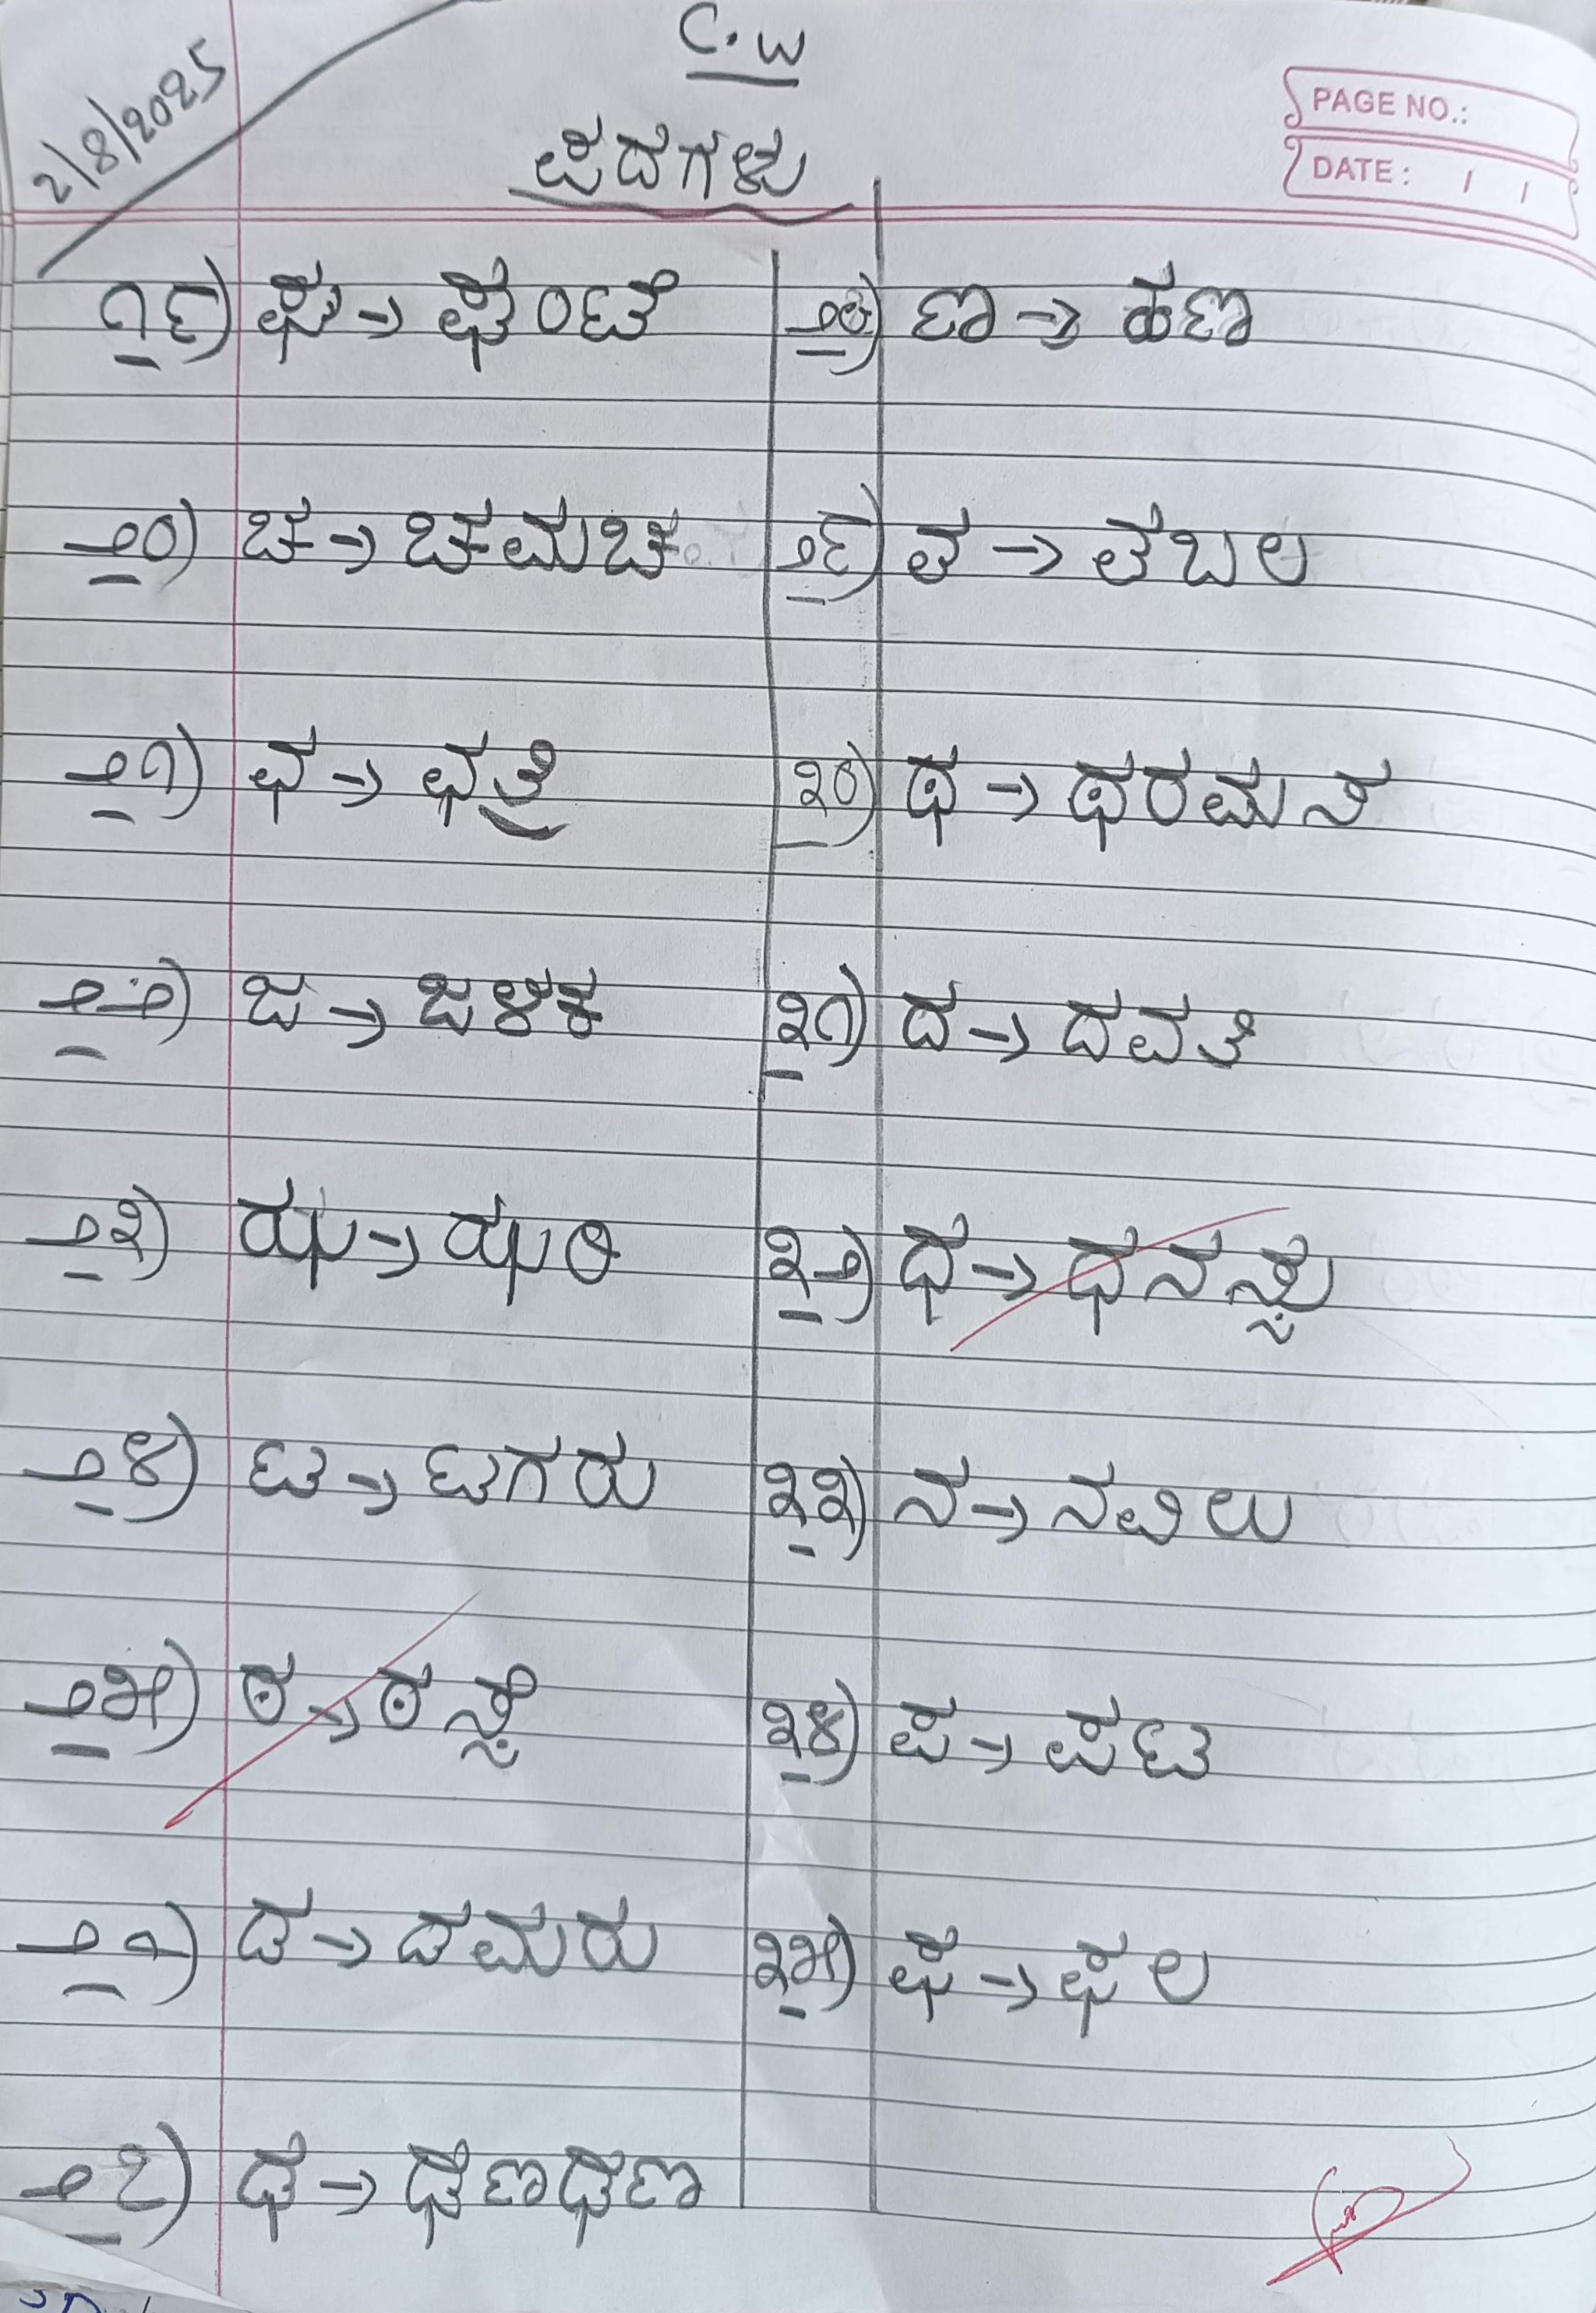 C.W
2/8/2025
ಪದಗಳು
PAGE NO.:
DATE: / /
೧೯) ಘ → ಘಂಟೆ
೨೦) ಚ → ಚಮಚ
೨೧) ಛ → ಛತ್ರಿ
೨೨) ಜ → ಜಳಕ
೨೩) ಝ → ಝರಿ
೨೪) ಟ → ಟಗರು
೨೫) ಠ → ಠಸ್ಸೆ
೨೬) ಡ → ಡಮರು
೨೭) ಢ → ಢಣಢಣ
೨೮) ಣ → ಹಣ
೨೯) ತ → ತಬಲ
೩೦) ಥ → ಥರಮಸ
೩೧) ದ → ದವತಿ
೩೨) ಧ → ಧನಸ್ಸು
೩೩) ನ → ನವಿಲು
೩೪) ಪ → ಪಟ
೩೫) ಫ → ಫಲ